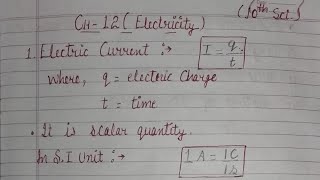 (10th Sci.)
CH-12 (Electricity)
1. Electric Current :→ I = q/t
where, q = electric Charge
t = time
• It is scalar quantity.
In S.I Unit :→ 1A = 1C/1s